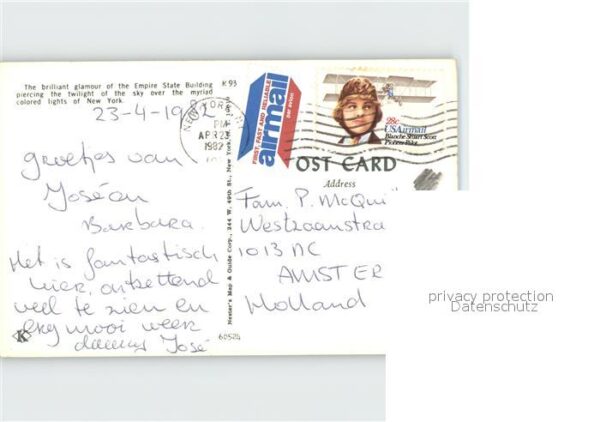 The brilliant glamour of the Empire State Building
piercing the twilight of the sky over the myriad
colored lights of New York.
K 93
23-4-1982
groetjes van
José en
Barbara.
Het is fantastisch
hier, ontzettend
veel te zien en
erg mooi weer
José
K
60524
Nester's Map & Guide Corp., 244 W. 49th St., New York,
NEW YORK
PM
APR 23
1982
FIRST, FAST AND RELIABLE
airmail
par avion
28c
USAirmail
Blanche Stuart Scott
Pioneer Pilot
OST CARD
Address
Fam. P. McQui
Westzaanstra
1013 NC
AMSTER
Holland
privacy protection
Datenschutz